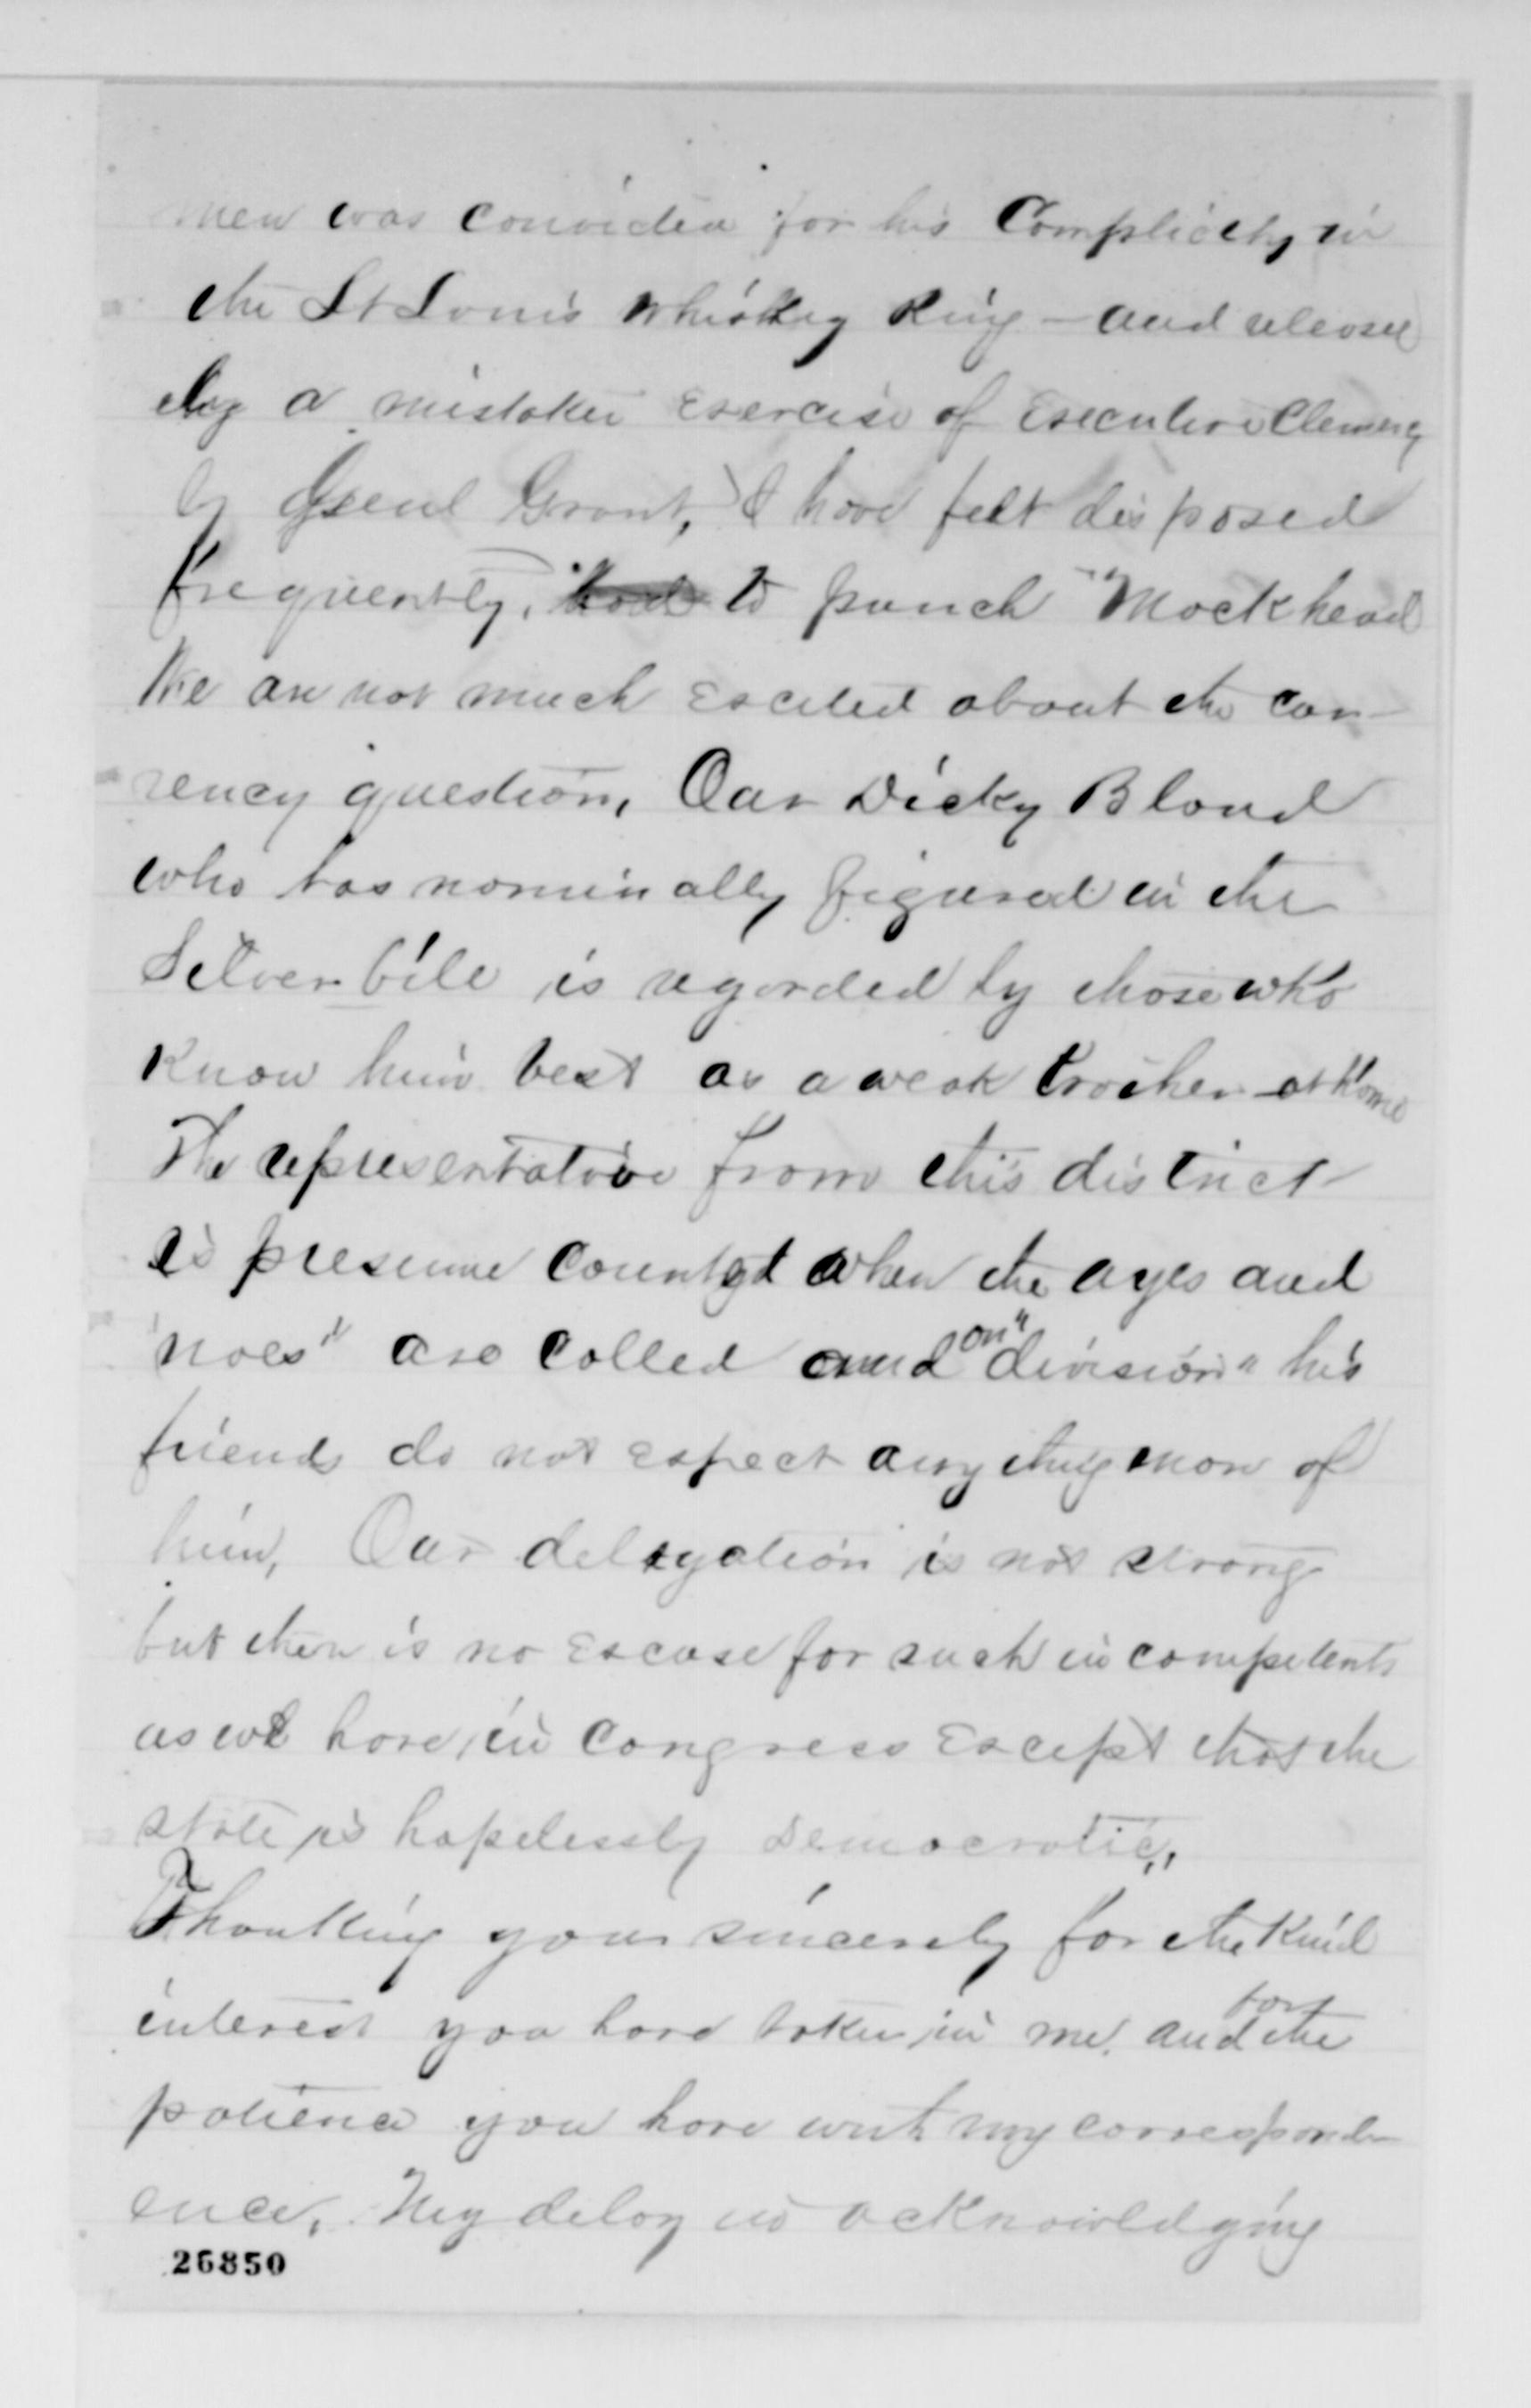 men was convicted for his Complicity in
the St Louis Whiskey Ring — and released
by a mistaken exercise of Executive Clemency
by Genl Grant,) I have felt disposed
frequently, to punch "Mockhead
We are not much excited about the cur-
rency question, Our Dicky Bland
who has nominally figured in the
Silver bill is regarded by those who
know him best as a weak brother at home
The representative from this district
is presume counted when the ayes and
"noes" are called and on "division" his
friends do not expect any thing more of
him, Our delegation is not strong
but there is no excuse for such incompetents
as we have in Congress except that the
state is hopelessly Democratic,
Thanking you sincerely for the kind
interest you have taken in me, and for the
patience you have with my correspond-
ence, My delay in acknowledging
26850